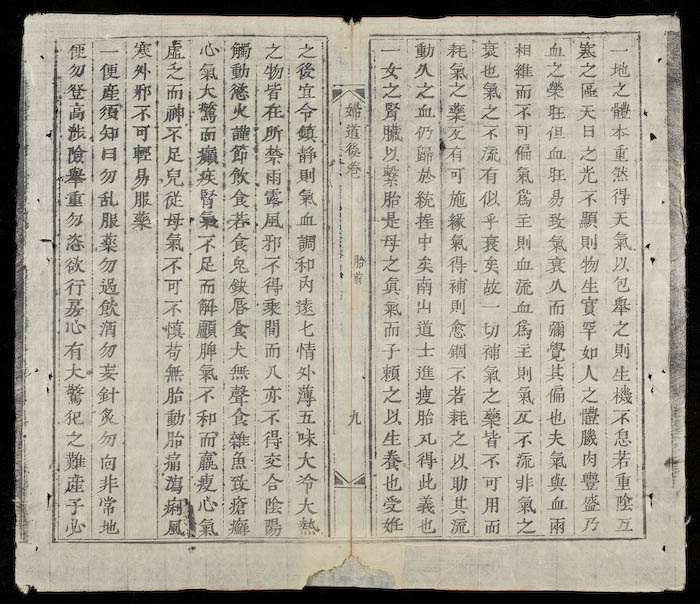 一地之體本重然得天氣以包舉之則生機不息若重陰冱
寒之區天日之光不顯則物生實罕如人之體臕肉豐盛乃
血之榮旺但血旺易致氣衰久而彌覺其偏也夫氣與血兩
相維而不可偏氣爲主則血流血爲主則氣反不流非氣之
衰也氣之不流有似乎衰矣故一切補氣之藥皆不可用而
耗氣之藥反有可施緣氣得補則愈錮不若耗之以助其流
動久之血仍歸於統握中矣南山道士進瘦胎丸得此義也
一女之腎臟以繫胎是母之眞氣而子賴之以生養也受姙
婦道後卷
胎前
九
之後宜令鎮静則氣血調和內遠七情外薄五味大冷大熱
之物皆在所禁雨露風邪不得乘間而入亦不得交合陰陽
觸動慾火謹節飲食若食兔缺唇食犬無聲食雜魚致瘡癬
心氣大驚而癲疾腎氣不足而解顱脾氣不和而羸瘦心氣
虛乏而神不足兒從母氣不可不慎苟無胎動胎痛瀉痢風
寒外邪不可輕易服藥
一便產須知曰勿乱服藥勿過飲酒勿妄針灸勿向非常地
便勿登高涉險舉重勿恣欲行房心有大驚犯之難産子必